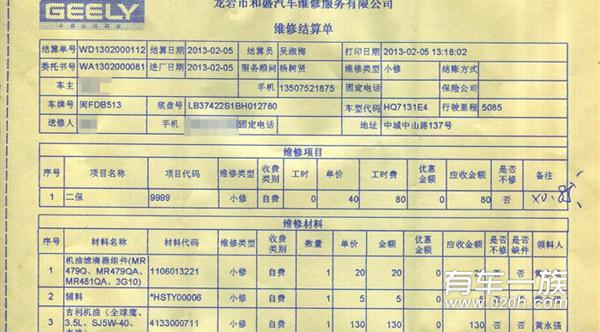 GEELY
龙岩市和盛汽车维修服务有限公司
维修结算单
结算单号 WD1302000112 结算日期 2013-02-05 结算员 吴淑梅 打印日期 2013-02-05 13:18:02
委托书号 WA1302000081 进厂日期 2013-02-05 服务顾问 杨树贤 维修类型 小修 结账方式
车主 手机 13507521875 固定电话 保险公司
车牌号 闽FDB513 底盘号 LB37422S1BH012780 车型代码 HQ7131E4 行驶里程 5085
送修人 手机 固定电话 地址 中城中山路137号
维修项目
序号 项目名称 项目代码 维修类型 收费类别 工时 单价 工时费 优惠金额 应收金额 是否不修 备注
1 二保 9999 小修 自费 0 40 80 0 80 否
维修材料
序号 材料名称 材料代码 维修类型 收费类别 数量 单价 金额 优惠金额 应收金额 是否不修 是否缺件 领料人
1 机油滤清器组件(MR479Q、MR479QA、MR481QA、3G10) 1106013221 小修 自费 1 20 20 0 20 否
2 辅料 *HSTY00006 小修 自费 1 5 5 0
3 吉利机油（全球鹰、3.5L、SJ5W-40、 4133000711 小修 自费 1 130 130 0 130 否 否 黄水强
有车一族
www.020h.com